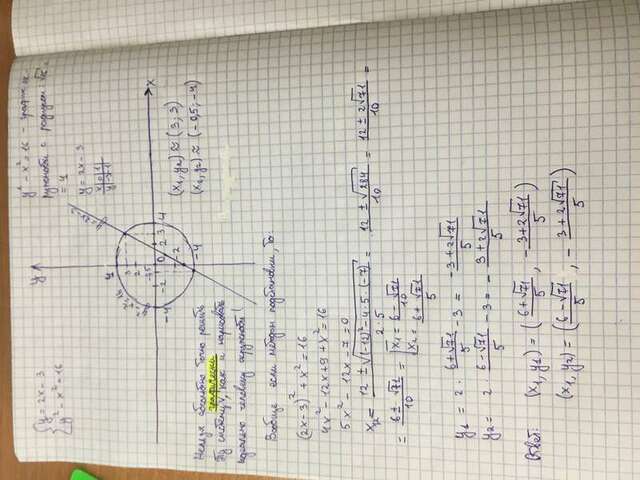 y = 2x - 3
y² - x² = 16
y² - x² = 16 - график ок-
ружности с радиусом: √16 =
= 4
y = 2x - 3
x | 0 | 1
y | -7 1
y
4
3
2
-0,5
-4 -2 0 2 3 4 x
-2
-4
y² - x² = 16
y = 2x - 3
(x₁, y₂) ≈ (3; 3)
(x₂, y₂) ≈ (-0,5; -4)
Нельзя абсолютно точно решить
графически
эту систему, как и нарисовать
идеально человеку окружность!
Вообще если методом подстановки, то:
(2x-3)² + x² = 16
4x² - 12x + 9 + x² = 16
5x² - 12x - 7 = 0
x₁,₂ = (12 ± √((-12)² - 4·5·(-7))) / (2·5) = (12 ± √284) / 10 = (12 ± 2√71) / 10 =
= (6 ± √71) / 10 = [ x₁ = (6 - √71) / 10
x₂ = (6 + √71) / 5
y₁ = 2 · (6+√71)/5 - 3 = (-3+2√71)/5
y₂ = 2 · (6-√71)/5 - 3 = - (3+2√71)/5
Ответ: (x₁, y₁) = ((6+√71)/5 , (-3+2√71)/5)
(x₁, y₂) = ((6-√71)/5 , - (3+2√71)/5)